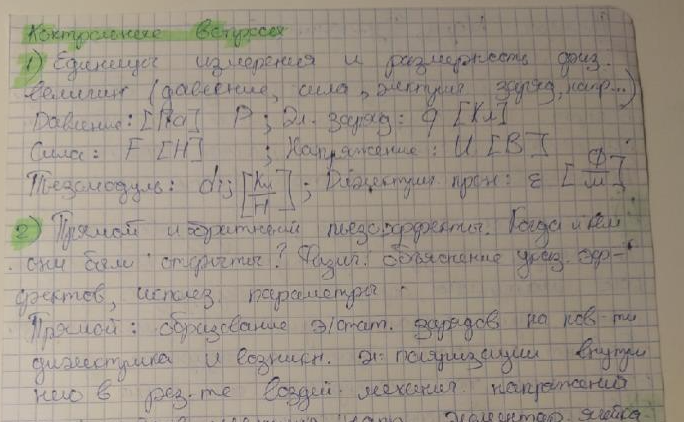 Контрольные вопросы
1) Единицы измерения и размерность физ.
величин (давление, сила, электрич. заряд, напр...)
Давление: [Па] P ; Эл. заряд: q [Кл]
Сила: F [Н] ; Напряжение: U [В]
Пьезомодуль: dij [Кл/Н] ; Диэлектрич. прон: ε [Ф/м]
2) Прямой и обратный пьезоэффекты. Когда и кем
они были открыты? Физич. объяснение указ. эф-
фектов, использ. параметры.
Прямой: образование э/стат. зарядов на пов-ти
диэлектрика и возникн. эл. поляризации внутри
него в рез-те воздей. механич. напряжений
элементар. ячейка